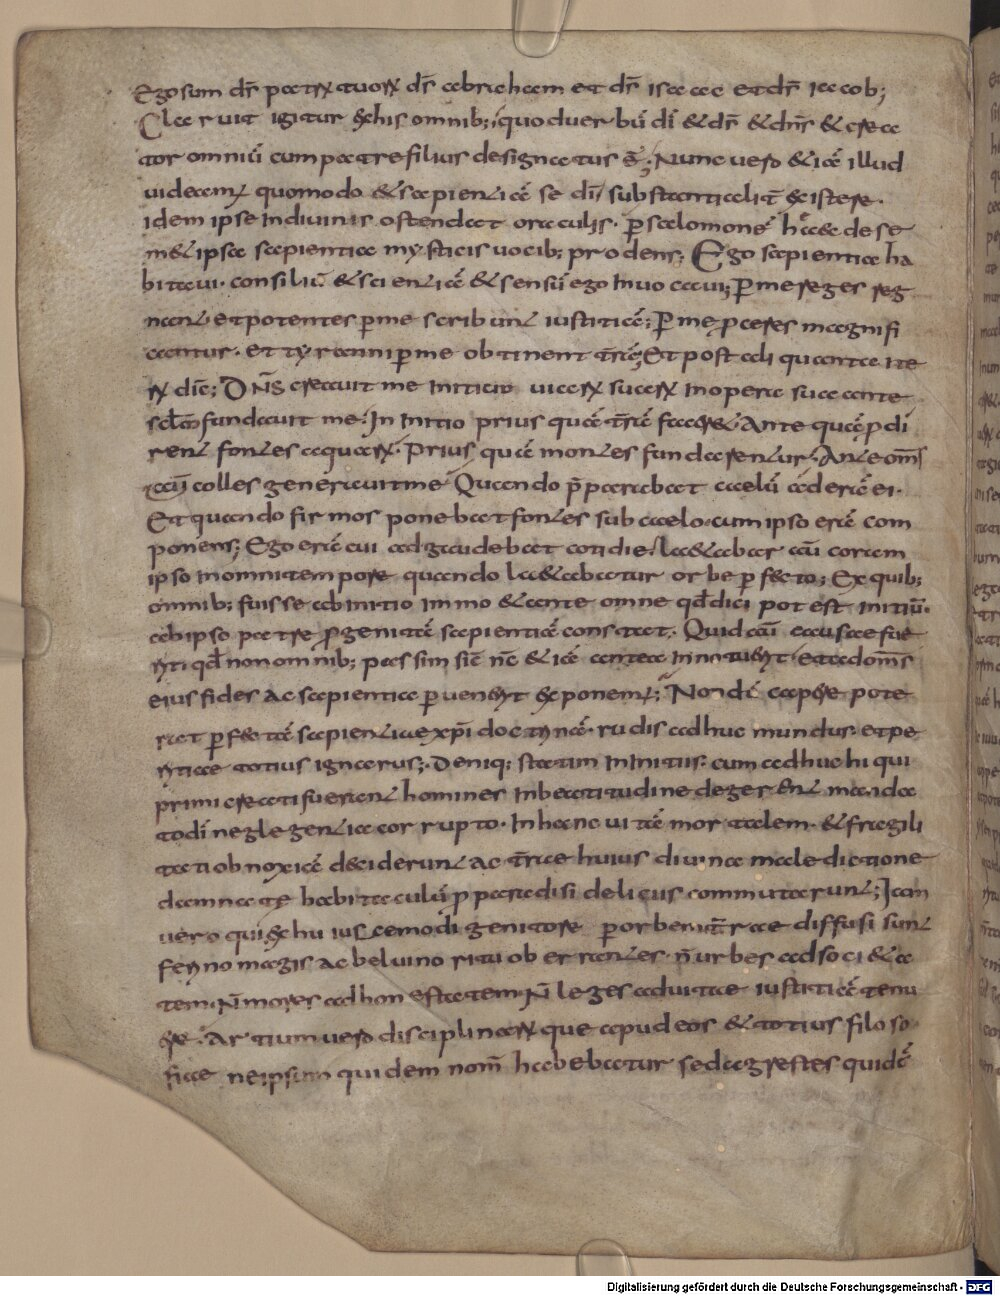 Ego sum ds̄ patrꝝ tuoꝝ ds̄ abraham et ds̄ isaac et ds̄ iacob;
Claruit igitur ex his omnib; quod uerbū dī & ds̄ & dn̄s & crea
tor omniū cum patre filius designatus ē; Nunc uero & iā illud
uideam; quomodo & sapientiā se dī substantialit̄ existere
idem ipse in diuinis ostendat oraculis. ꝑ salomonē hæc de se
m& ipsa sapientia mysticis uocib; prodens; Ego sapientia ha
bitaui. consiliū & scientiā & sensū ego inuocaui; ꝑ me reges reg
nant. et potentes ꝑ me scribunt iustitiā; ꝑ me proceres magnifi
cantur. et tyranni ꝑ me obtinent trā; Et post aliquanta ite
rꝝ dic̄; DN̄S creauit me initiū uiarꝝ suarꝝ in opera sua ante
scl̄a fundauit me. In initio prius quā trā faceret. Ante quā ꝓdi
rent fontes aquarꝝ. Prius quā montes fundarentur. Ante om̄s
aū colles generauit me. Quando p̄parabat caelū aderā ei.
Et quando firmos ponebat fontes sub caelo. cum ipso erā com
ponens; Ego erā cui adgaudebat cotidie. l&abar aū coram
ipso in omni tempore quando l&abatur orbe ꝑfecto; Ex quib;
omnib; fuisse ab initio immo & ante omne qd̄ dici potest initiū.
ab ipso patre ꝓgenitā sapientiā constat. Quid aū causae fue
rit qd̄ non omnib; passim sic̄ nc̄ & iā antea innotuerit. et ad om̄s
eius fides ac sapientia ꝑuenerit exponem; Nondū capere pote
rat ꝑfectā sapientiae xp̄i doctrinā. rudis adhuc mundus. et pe
ritiae totius ignarus; Deniq; statim in initiis. cum adhuc hi qui
primi creati fuerant homines in beatitudine degerent mandа
to dī neglegentia corrupto. In hanc uitā mortalem. & fragili
tati obnoxiā deciderunt ac trae huius diuina maledictione
damnatae habitaculū ꝓ paradisi deliciis commutarunt; Iam
uero qui ex huiuscemodi genitore ꝑ orbem trae diffusi sunt
ferino magis ac beluino ritu oberrantes. n̄ urbes ad soci&a
tem. N̄ mores ad honestatem. N̄ leges ad uitae iustitiā tenu
ere. Artium uero disciplinarꝝ que apud eos & totius filoso
fiae ne ipsum quidem nom̄ habebatur sed agrestes quidē
Digitalisierung gefördert durch die Deutsche Forschungsgemeinschaft - DFG